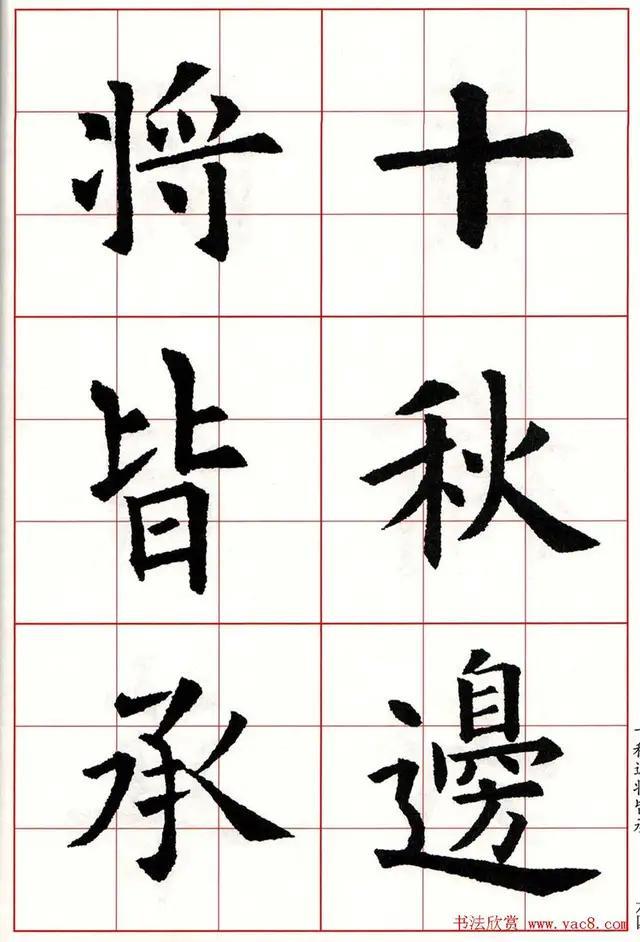 十秋邊
将皆承
书法欣赏 www.yac8.com